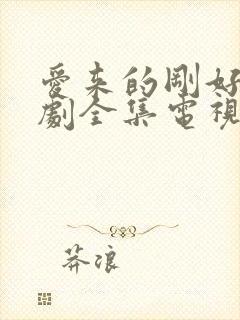 愛來的剛好
劇全集電視
莽浪